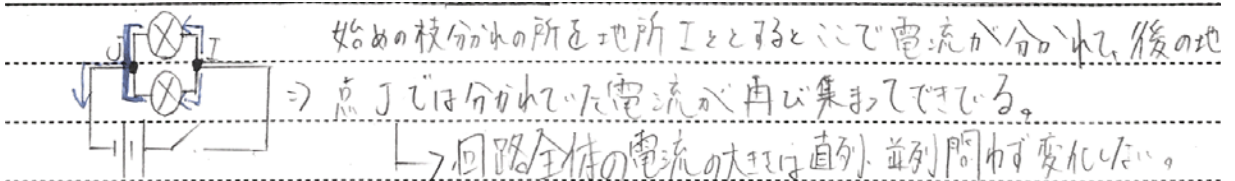 J I 始めの枝分かれの所を地所Iととするとここで電流が分かれて、後の地
⇒ 点Jでは分かれていた電流が再び集まってできでる。
→回路全体の電流の大きさは直列、並列問わず変化しない。